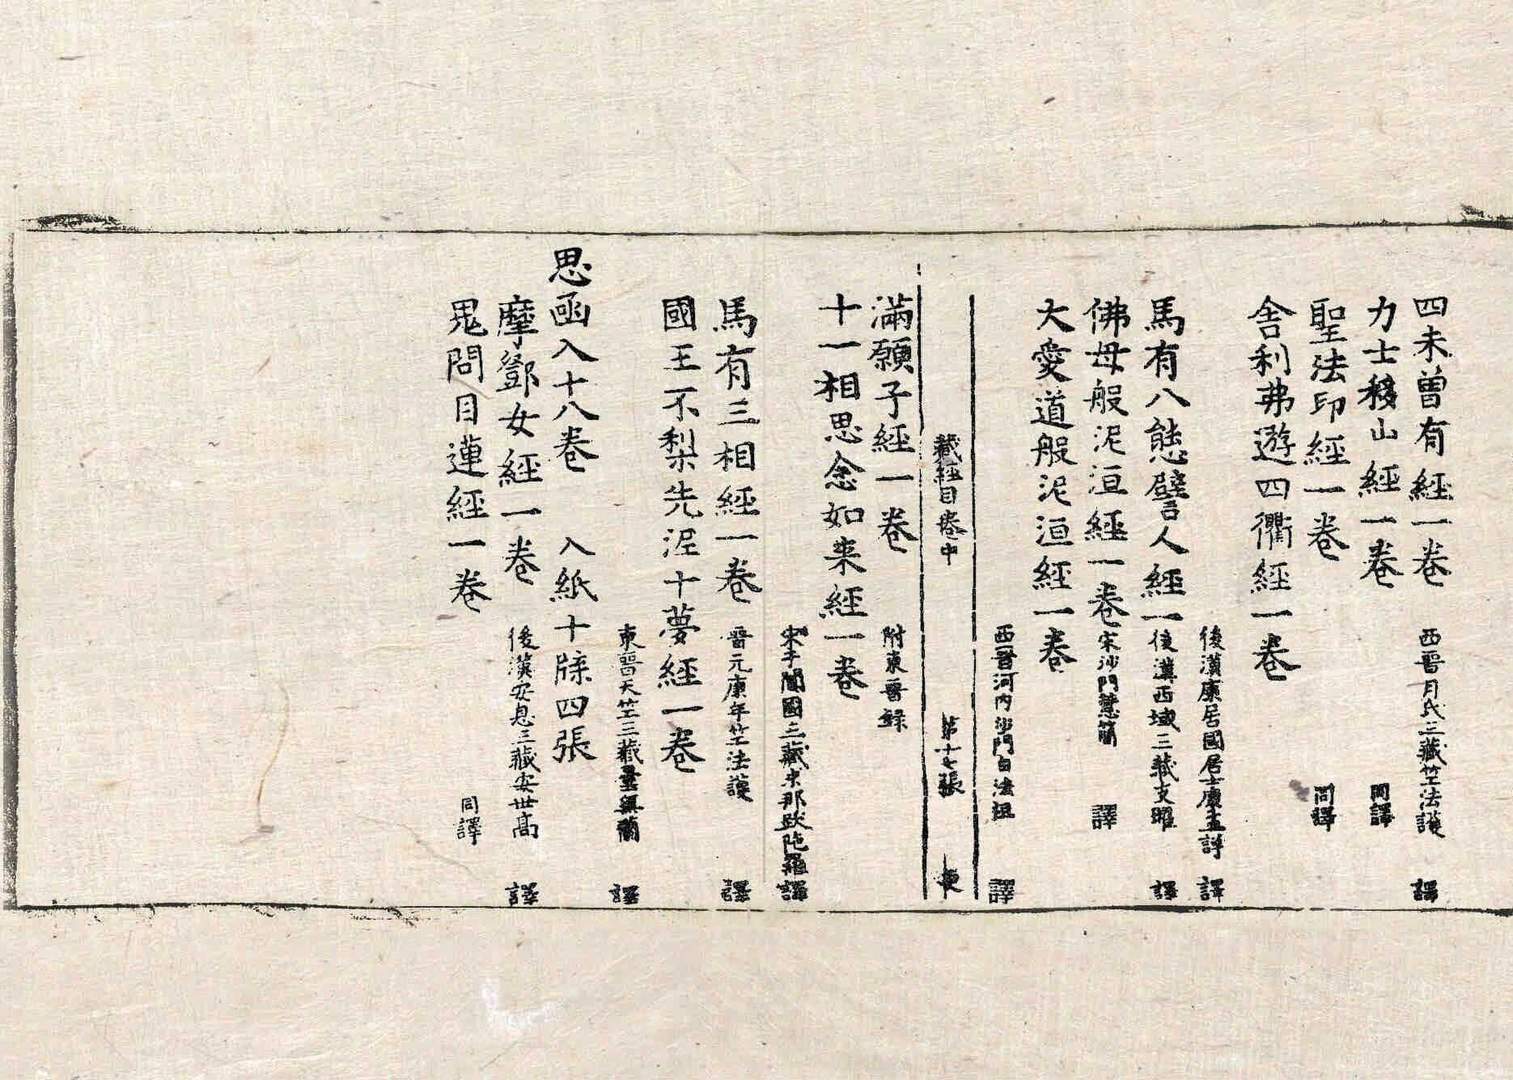 四未曾有經一卷 西晉月氏三藏竺法護 譯
力士移山經一卷 同譯
聖法印經一卷 同譯
舍利弗遊四衢經一卷
後漢康居國居士康孟詳 譯
馬有八態譬人經一 後漢西域三藏支曜 譯
佛母般泥洹經一卷 宋沙門慧簡 譯
大愛道般泥洹經一卷
西晉河內沙門白法祖 譯
藏經目卷中 第十七張
滿願子經一卷 附東晉錄
十一相思念如來經一卷
宋于闐國三藏求那跋陁羅譯
馬有三相經一卷 晉元康年竺法護 譯
國王不梨先泥十夢經一卷
東晉天竺三藏曇無蘭 譯
思函入十八卷 入紙十牒四張
摩鄧女經一卷 後漢安息三藏安世高 譯
鬼問目連經一卷 同譯